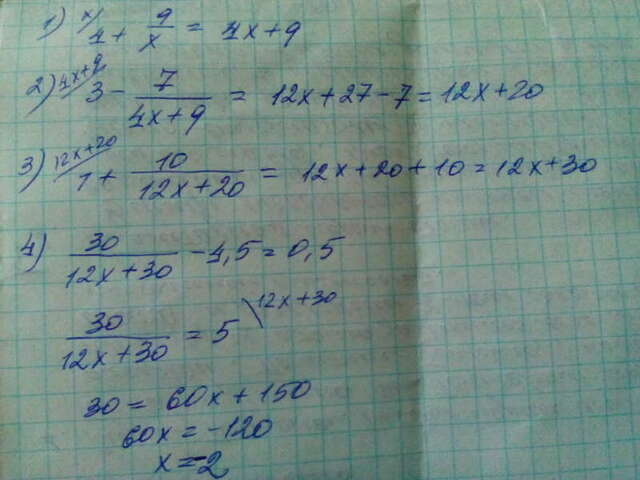 1) x/ 4 + 9/x = 4x+9
2) 4x+9/ 3 - 7/(4x+9) = 12x+27-7 = 12x+20
3) 12x+20/ 1 + 10/(12x+20) = 12x+20+10 = 12x+30
4) 30/(12x+30) - 4,5 = 0,5
30/(12x+30) = 5 \12x+30
30 = 60x+150
60x = -120
x = -2